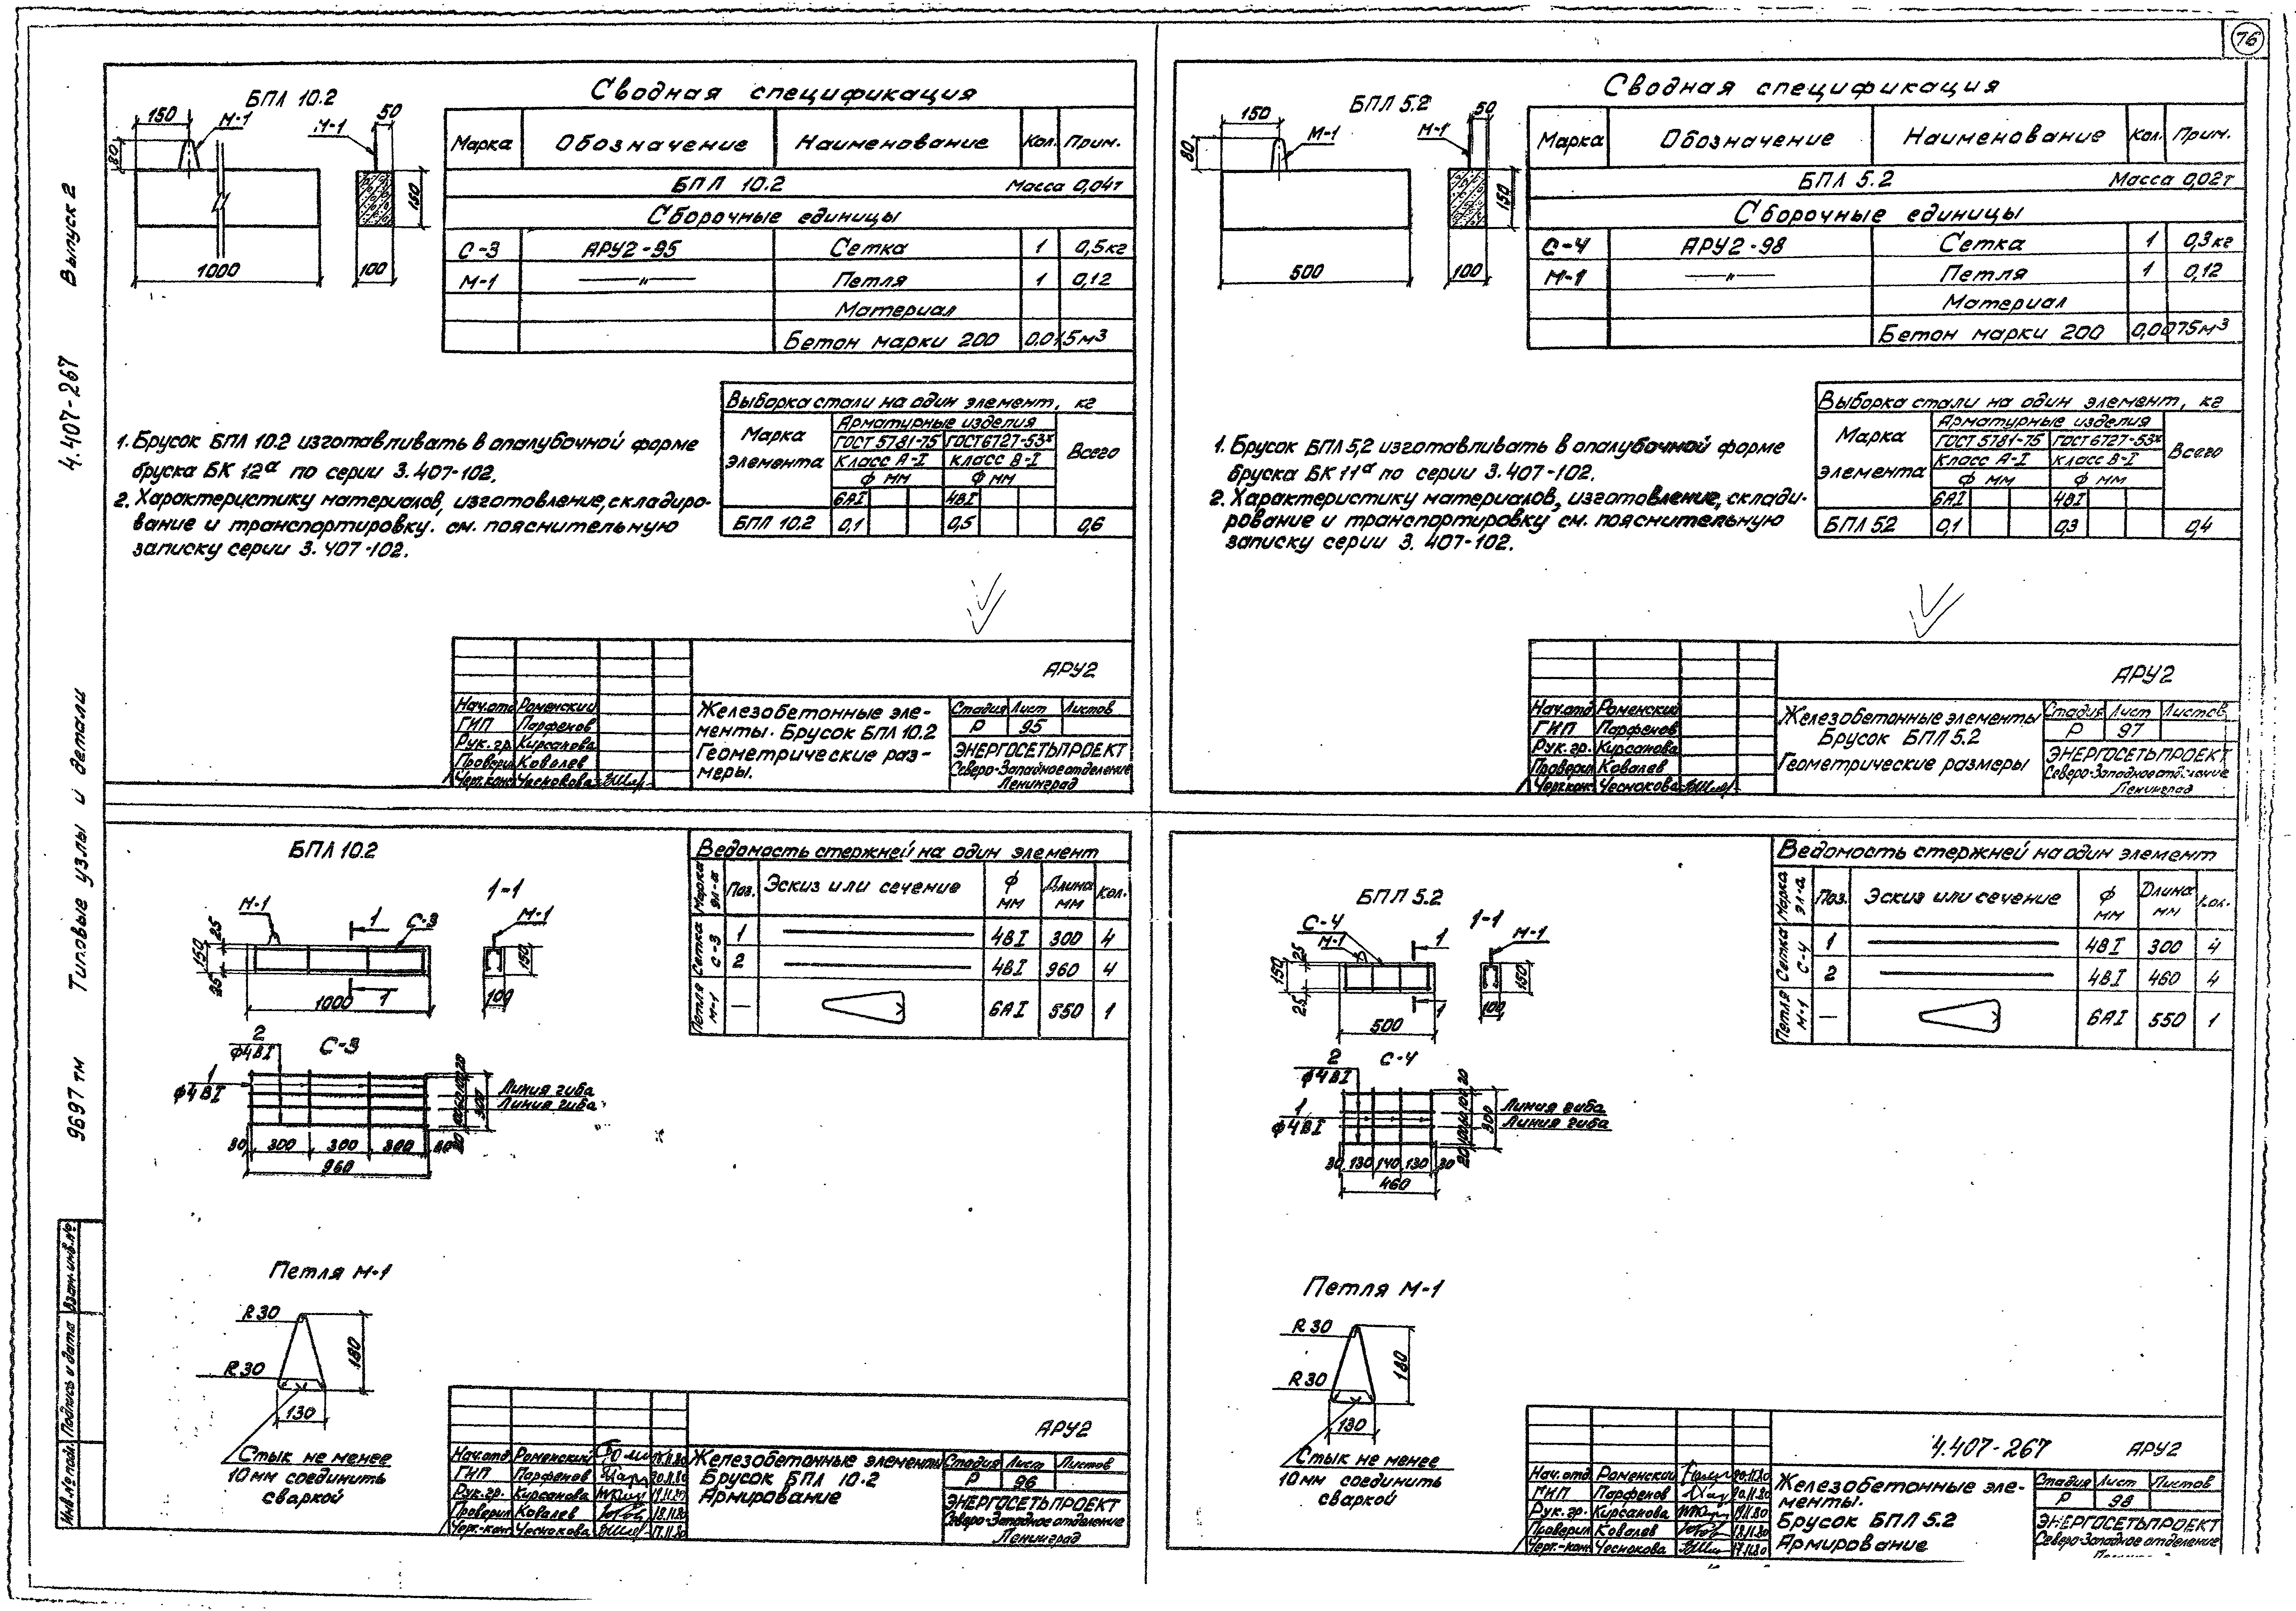 76
Выпуск 2
4.407-267
Типовые узлы и детали
9697 тм
Взам. инв. №
Подпись и дата
Инв. № подл.
БПЛ 10.2
150
М-1
М-1
50
80
150
1000
100
Сводная спецификация
Марка Обозначение Наименование Кол. Прим.
БПЛ 10.2 Масса 0,04т
Сборочные единицы
С-3 АРУ2-95 Сетка 1 0,5кг
М-1 —"— Петля 1 0,12
Материал
Бетон марки 200 0.015м³
1. Брусок БПЛ 10.2 изготавливать в опалубочной форме
бруска БК 12а по серии 3.407-102.
2. Характеристику материалов, изготовление, складиро-
вание и транспортировку. см. пояснительную
записку серии 3.407-102.
Выборка стали на один элемент, кг
Марка элемента
Арматурные изделия
ГОСТ 5781-75 ГОСТ 6727-53х
Класс А-I Класс В-I
Всего
ф мм ф мм
6АI 4ВI
БПЛ 10.2 0,1 0,5 0,6
АРУ2
Нач.отд Роменский
ГИП Парфенов
Рук.гр. Кирсанова
Проверил Ковалев
Черт.кон. Чеснокова
Железобетонные эле-
менты. Брусок БПЛ 10.2
Геометрические раз-
меры.
Стадия Лист Листов
Р 95
ЭНЕРГОСЕТЬПРОЕКТ
Северо-Западное отделение
Ленинград
БПЛ 5.2
150
М-1
М-1
50
80
150
500
100
Сводная спецификация
Марка Обозначение Наименование Кол. Прим.
БПЛ 5.2 Масса 0,02т
Сборочные единицы
С-4 АРУ2-98 Сетка 1 0,3кг
М-1 —"— Петля 1 0,12
Материал
Бетон марки 200 0,0075м³
1. Брусок БПЛ 5.2 изготавливать в опалубочной форме
бруска БК 11а по серии 3.407-102.
2. Характеристику материалов, изготовление, склади-
рование и транспортировку см. пояснительную
записку серии 3.407-102.
Выборка стали на один элемент, кг
Марка элемента
Арматурные изделия
ГОСТ 5781-75 ГОСТ 6727-53х
Класс А-I Класс В-I
Всего
ф мм ф мм
6АI 4ВI
БПЛ 5.2 0,1 0,3 0,4
АРУ2
Нач.отд Роменский
ГИП Парфенов
Рук.гр. Кирсанова
Проверил Ковалев
Черт.кон. Чеснокова
Железобетонные элементы
Брусок БПЛ 5.2
Геометрические размеры
Стадия Лист Листов
Р 97
ЭНЕРГОСЕТЬПРОЕКТ
Северо-Западное отделение
Ленинград
БПЛ 10.2
1-1
М-1
1
С-3
М-1
25
150
35
1
1000
150
100
2
ф4ВI
С-3
1
ф4ВI
Линия гиба
Линия гиба
300
30 300 300 300
960
Петля М-1
R30
R30
180
130
Стык не менее
10мм соединить
сваркой
Ведомость стержней на один элемент
Марка эл-а Поз. Эскиз или сечение ф мм Длина мм Кол.
Сетка С-3
1 4ВI 300 4
2 4ВI 960 4
Петля М-1
— 6АI 550 1
АРУ2
Нач.отд Роменский
ГИП Парфенов
Рук.гр. Кирсанова
Проверил Ковалев 18.11.80
Черт.-кон. Чеснокова 17.11.80
Железобетонные элементы
Брусок БПЛ 10.2
Армирование
Стадия Лист Листов
Р 96
ЭНЕРГОСЕТЬПРОЕКТ
Северо-Западное отделение
Ленинград
БПЛ 5.2
1-1
С-4
М-1
1
М-1
150
25
25
1
500
150
100
2
ф4ВI
С-4
1
ф4ВI
Линия гиба
Линия гиба
300
30 130 140 130 30
460
Петля М-1
R30
R30
180
130
Стык не менее
10мм соединить
сваркой
Ведомость стержней на один элемент
Марка эл-а Поз. Эскиз или сечение ф мм Длина мм Кол.
Сетка С-4
1 4ВI 300 4
2 4ВI 460 4
Петля М-1
— 6АI 550 1
4.407-267 АРУ2
Нач.отд Роменский 20.11.80
ГИП Парфенов 20.11.80
Рук.гр. Кирсанова 19.11.80
Проверил Ковалев 18.11.80
Черт.-кон. Чеснокова 17.11.80
Железобетонные эле-
менты.
Брусок БПЛ 5.2
Армирование
Стадия Лист Листов
Р 98
ЭНЕРГОСЕТЬПРОЕКТ
Северо-Западное отделение